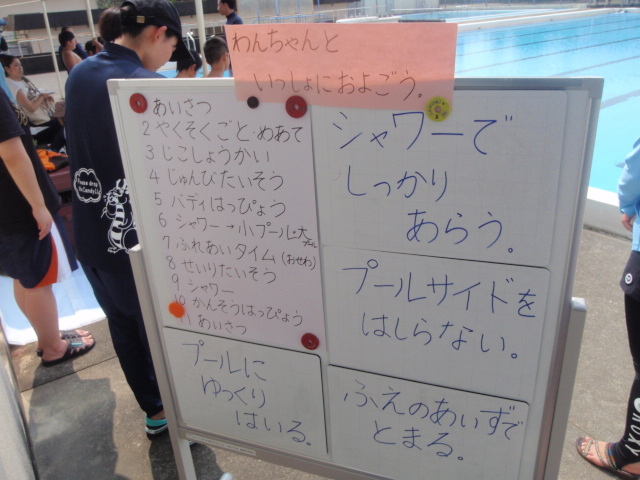 わんちゃんと
いっしょにおよごう。
あいさつ
2 やくそくごと・めあて
3 じこしょうかい
4 じゅんびたいそう
5 バディはっぴょう
6 シャワー→小プール→大プール
7 ふれあいタイム(おせわ)
8 せいりたいそう
9 シャワー
10 かんそうはっぴょう
11 あいさつ
シャワーで
しっかり
あらう。
プールサイドを
はしらない。
プールに
ゆっくり
はいる。
ふえのあいずで
とまる。